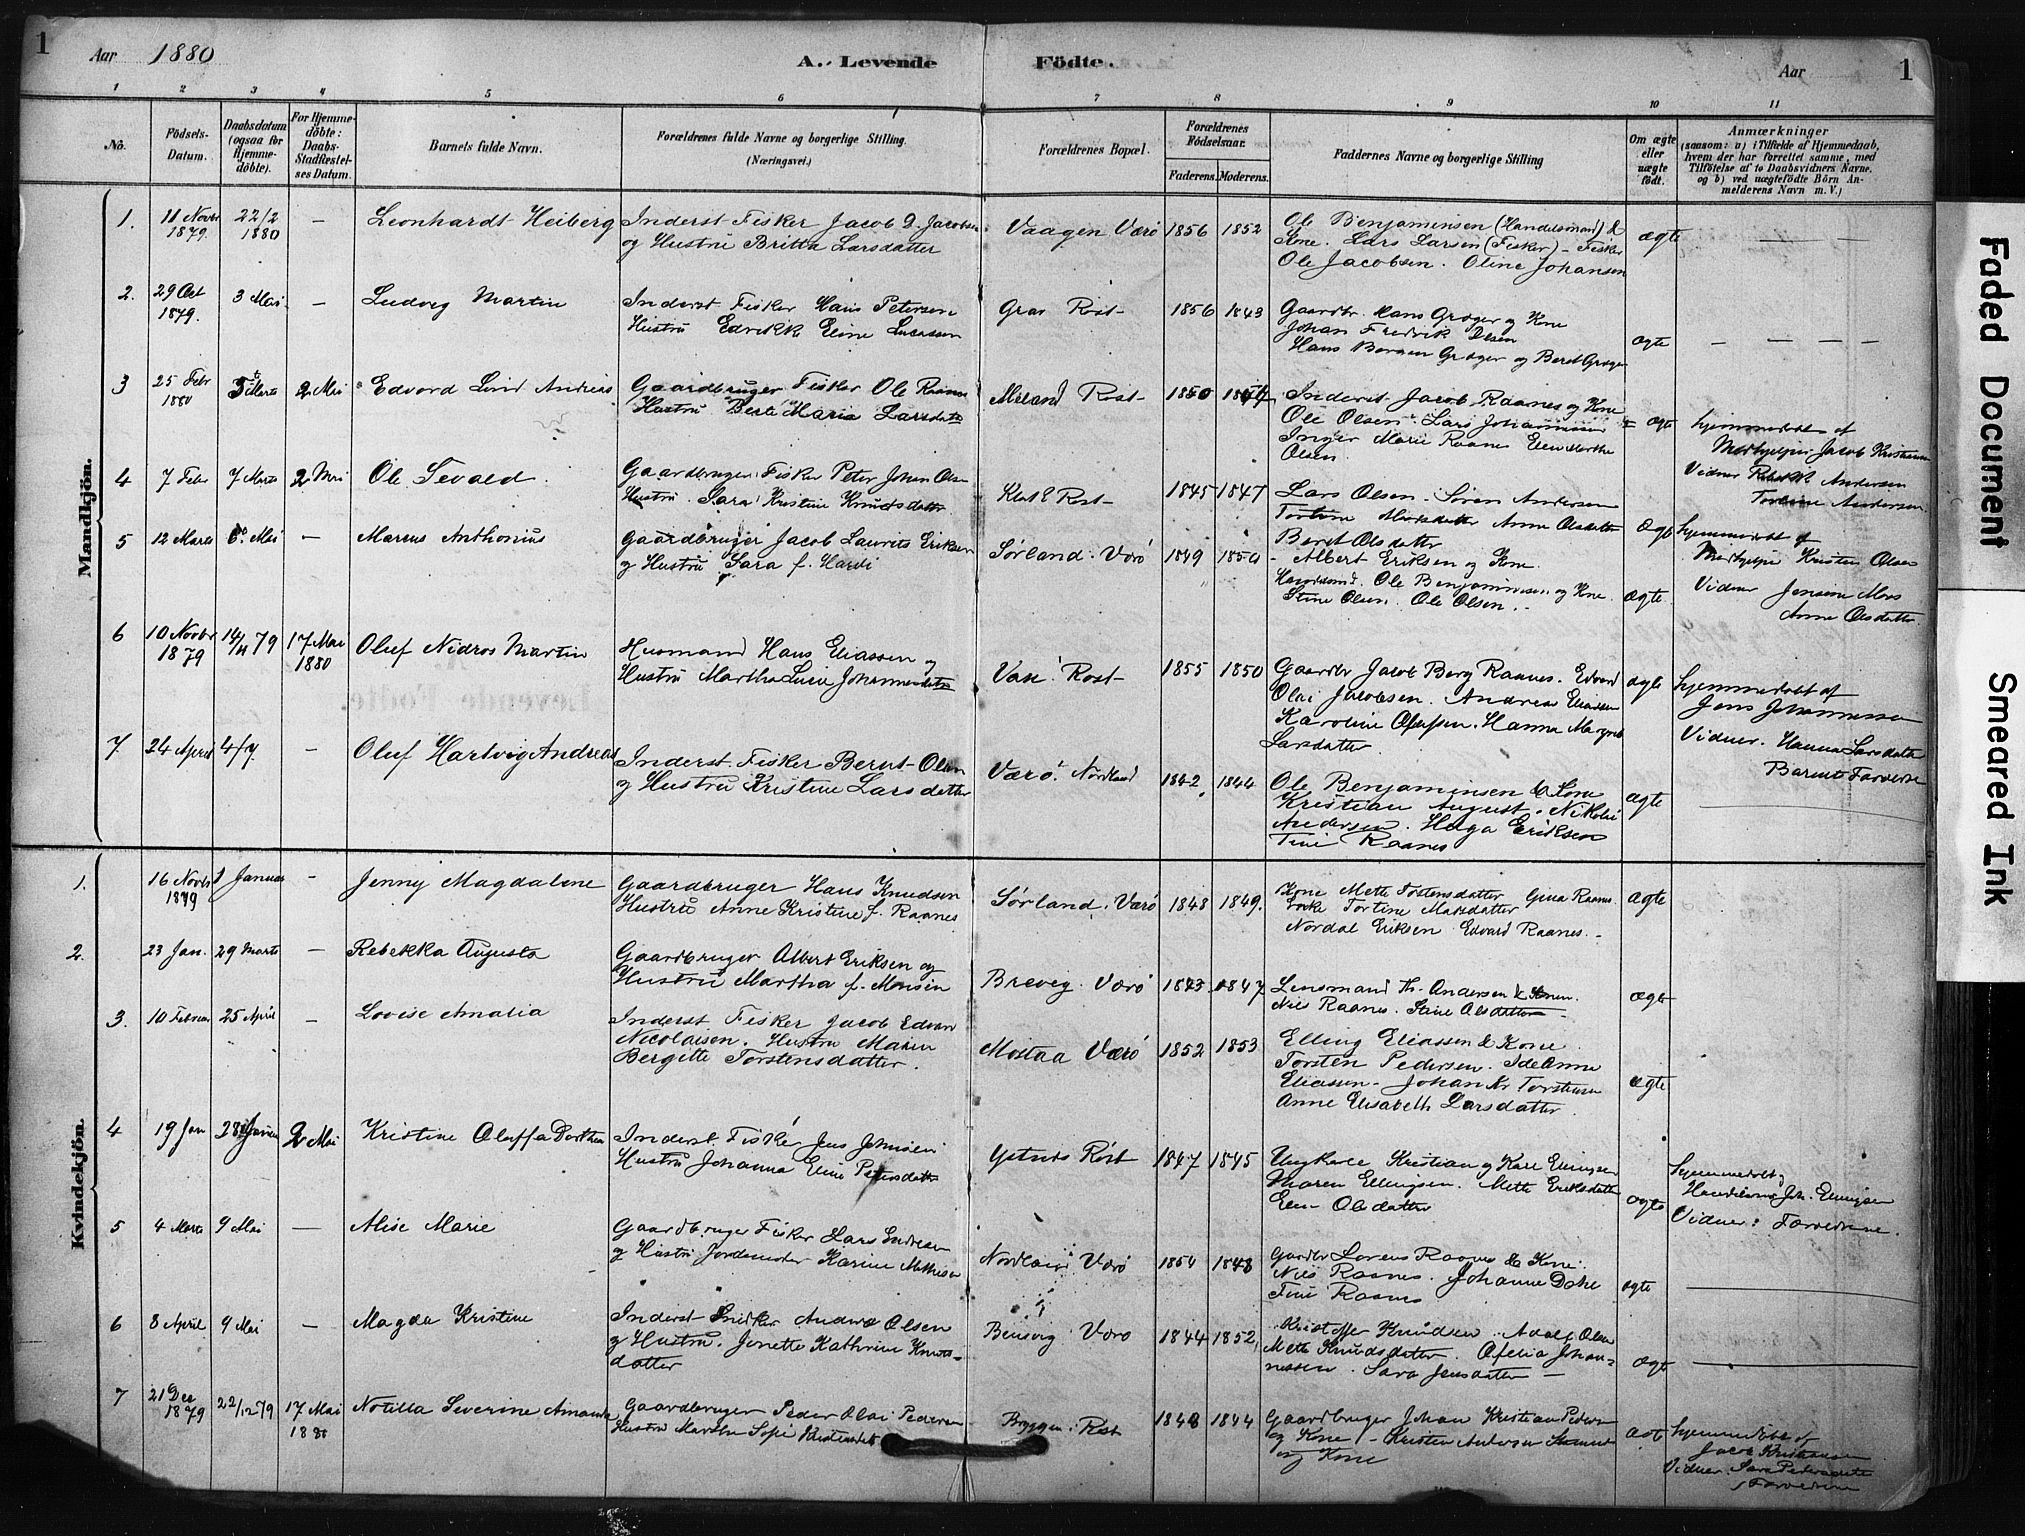 1
Aar 1880
A. Levende Födte.
Aar
1
1 2 3 4 5 6 7 8 9 10 11
No.
Födsels-
Datum.
Daabsdatum
(ogsaa for
Hjemme-
döbte).
For Hjemme-
döbte:
Daabs-
Stadfæstel-
ses Datum.
Barnets fulde Navn.
Forældrenes fulde Navne og borgerlige Stilling.
(Næringsvei.)
Forældrenes Bopæl.
Forældrenes
Födselsaar.
Faderens. Moderens.
Faddernes Navne og borgerlige Stilling
Om ægte
eller
uægte
født.
Anmærkninger
(saasom: a) i Tilfælde af Hjemmedaab,
hvem der har forrettet samme, med
Tilföielse af to Daabsvidners Navne,
og b) ved uægtefödte Börn An-
melderens Navn m. V.)
Mandkjön.
1. 11 Novbr 1879. 22/2 1880 — Leonhardt Heiberg
Inderst Fisker Jacob D. Jacobsen
og Hustru Britta Larsdatter
Vaagen Værö 1856 1852
Ole Benjaminsen (Handelsmand) &
Kone. Lars Larsen (Fisker) – Fisker
Ole Jacobsen. Oline Johansen
ægte — — —
2. 29 Oct 1879. 3 Mai — Ludvig Martin
Inderst Fisker Hans Petersen
Hustru Edrikke Eline Lucassen
Röst 1856 1843
Gaardbr. Hans Græger og Kone
Johan Fredrik Olsen
Hans Borgen Græger og Beret Græger
ægte — — — —
3 25 Febr 1880 5 Marts 2 Mai Edvard Lind Andreas
Gaardbruger Fisker Ole Raanes
Hustru Marie Larsdatter
Röst 1850
Inderst Jacob Raanes og Kone
Ole Olsen Lars Johannessen
Inger Marie Raanes
Olsen.
ægte
hjemmedöbt af
Jacob Kristiansen
Vidner Andersen
Andersen
4 7 Febr 7 Marts 2 Mai Ole Sevald.
Gaardbruger Fisker Peter Johan Olsen
Hustru. Sara Kristine Knudsdatter
Röst 1845 1847
Lars Olsen. Sören Andersen
Anne Olsdatter
Beret Olsdatter
ægte
hjemmedöbt af
Kristen Olsen
Vidner
Anne Olsdatter
5 12 Marts Mai — Marcus Anthonius
Gaardbruger Jacob Laurits Eriksen
og Hustru Sara f. Hardi
Sörland. Værö 1849
Albert Eriksen og Kone
Handelsmd. Ole Benjaminsen og Kone.
Stine Olsen. Ole Olsen.
ægte.
6 10 Novbr 1879 14/11 79 17 Mai 1880 Oluf Nidros Martin
Husmand Hans Eliassen og
Hustru Martha Johannesdatter
Röst 1855 1850
Gaardbr Jacob Berg Raanes. Edvard
Olai Jacobsen. Andreas Eliassen
Karoline Olufsen. Hanna
Larsdatter.
ægte
hjemmedöbt af
Jens Johannessen
Vidner. Hanna Larsdatter
7. 24 April 4/7. — Oluf Hartvig Andreas
Inderst. Fisker Bernt Olsen
og Hustru Kristine Larsdatter
Værö. Nordland 1842 1844
Ole Benjaminsen & Kone
Kristian August. Nikolai
Andersen. Helga Eriksen
Tine Raanes
ægte
Kvindekjön.
1. 16 Novbr 1879 1 Januar – Jenny Magdalene
Gaardbruger Hans Knudsen
Hustru Anne Kristine f. Raanes
Sörland. Værö 1848 1849.
Kone Mette Torstensdatter Gina Raanes.
Tortine Marsdatter
Nordal Eriksen Edvard Raanes. –
ægte
2. 23 Jan. 29 Marts — Rebekka Augusta
Gaardbruger Albert Eriksen og
Hustru Martha f. Monsen
Brevig. Værö 1843 1847
Lensmand Th. Andersen &
Nils Raanes. Stine Olsdatter
ægte
3. 10 Februar 25 April — Lovise Amalia
Inderst Fisker Jacob Edvard
Nicolaisen. Hustru Maren
Bergitte Torstensdatter.
Mostaa Værö 1852 1853
Elling Eliassen & Kone
Torsten Pedersen. Ide Anne
Eliassen – Johan Kr Torstensen
Anne Elisabeth Larsdatter.
ægte
4 19 Jan 28 Januar 2 Mai Kristine Oluffa Dorthea
Inderst Fisker Jens Johnsen
Hustru Johanna Eline Petersdatter
Röst 1847 1845
Ungkarle Kristian og Karl Ellingsen
Maren Ellingsen. Mette Eriksdatter
Olsdatter
ægte
hjemmedöbt
Joh. Ellingsen
Vidner: Forældrene.
5 4 Marts 9 Mai — Alise Marie
Gaardbruger Fisker Lars Andreasen
og Hustru Jordemoder Karine Mathisen
Nordland Værö 1854 1848
Gaardbr Lorens Raanes & Kone.
Nils Raanes. Johanne Dahl
Tine Raanes
ægte
6 8 April 9 Mai — Magda Kristine
Inderst Snedker Anders Olsen
og Hustru. Jonette Kathrine Knuts-
datter
Værö 1844 1852,
Kristoffer Knudsen. Adolf Olsen
Mette Knudsdatter. Ofelia Johan-
nessen. Sara Jensdatter —
ægte
7 21 Dec 1879 22/12 79 17 Mai 1880 Notilla Severine Amanda
Gaardbruger Peder Olai Pedersen
Hustru Martha Sofie Kristensdatter
Bryggen. Röst 1848 1844
Gaardbruger Johan Kristian Pedersen
og Kone – Kristen Andersen
og Kone
ægte
hjemmedöbt af
Jacob Kristiansen
Vidner. Sara Pedersdatter
Forældrene
Faded Document
Smeared Ink